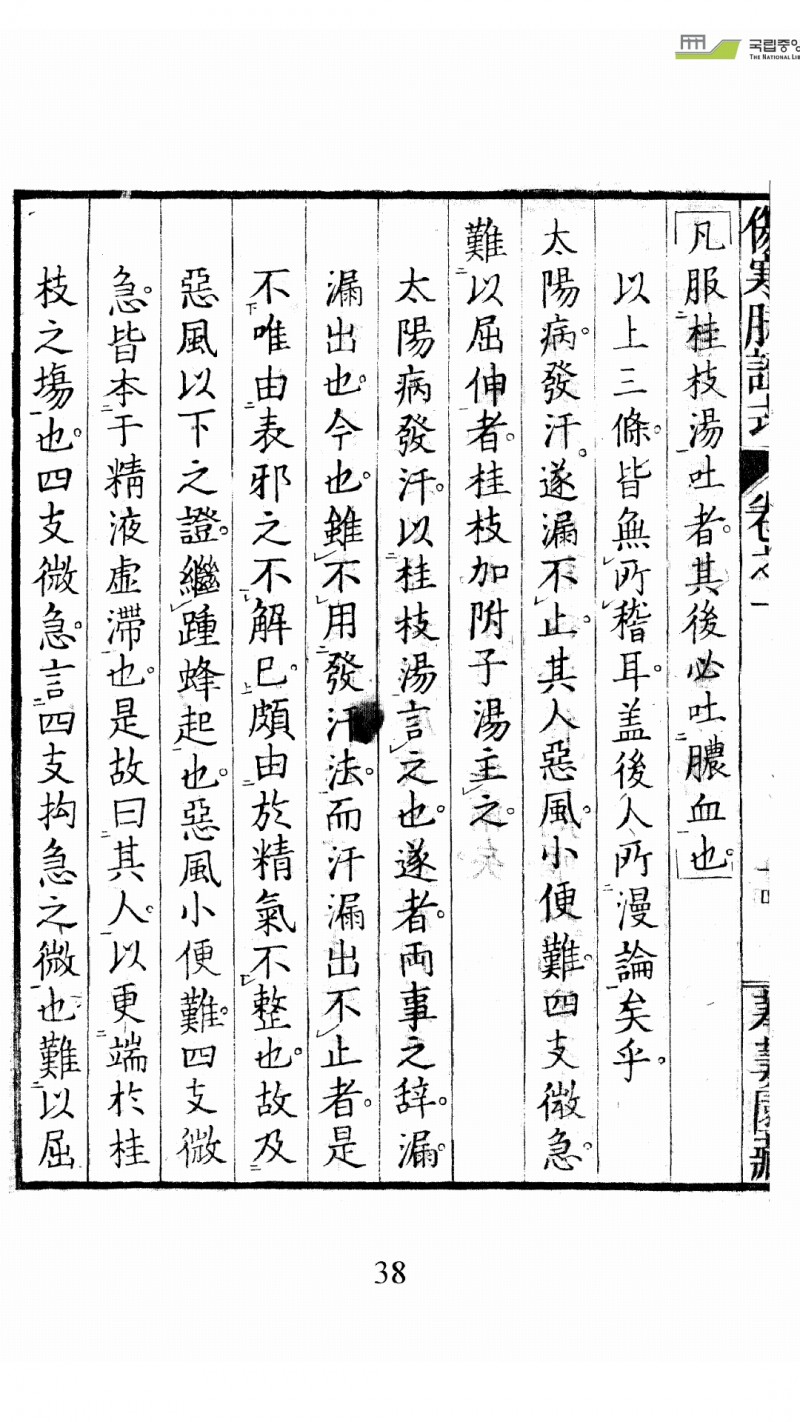 国립중앙
THE NATIONAL LIB
傷寒脈證式 卷之一
凡服桂枝湯吐者。其後必吐膿血也。
以上三條。皆無所稽耳。盖後人所漫論矣乎。
太陽病。發汗。遂漏不止。其人惡風。小便難。四支微急。
難以屈伸者。桂枝加附子湯主之。
太陽病發汗。以桂枝湯言之也。遂者。両事之辞。漏。
漏出也。今也。雖不用發汗法。而汗漏出不止者。是
不唯由表邪之不解已。頗由於精氣不整也。故及
惡風以下之證。繼踵蜂起也。惡風小便難。四支微
急。皆本于精液虛滞也。是故曰其人。以更端於桂
枝之塲也。四支微急。言四支拘急之微也。難以屈
38